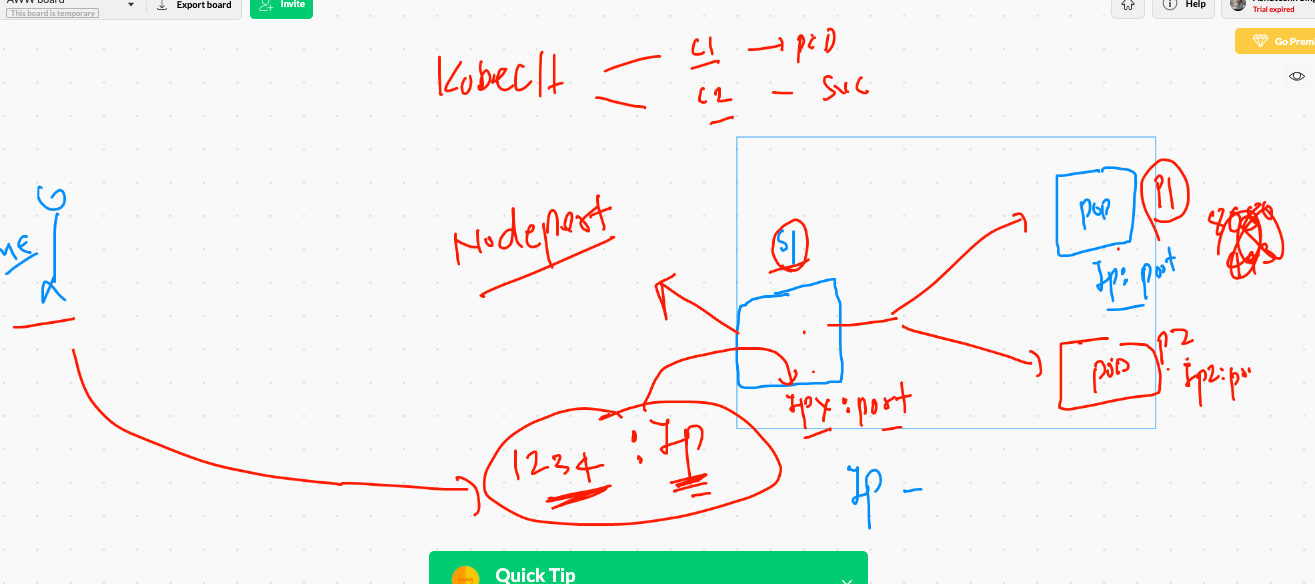 AWW board
This board is temporary
Export board
Invite
Help
Trial expired
Go Prem
Kubectl
C1 → pod
C2 - SVC
ME
Nodeport
S1
pod
P1
Ip: port
pod
P2
Ip2:po
Ipx : port
1234 : Ip
Ip -
Quick Tip